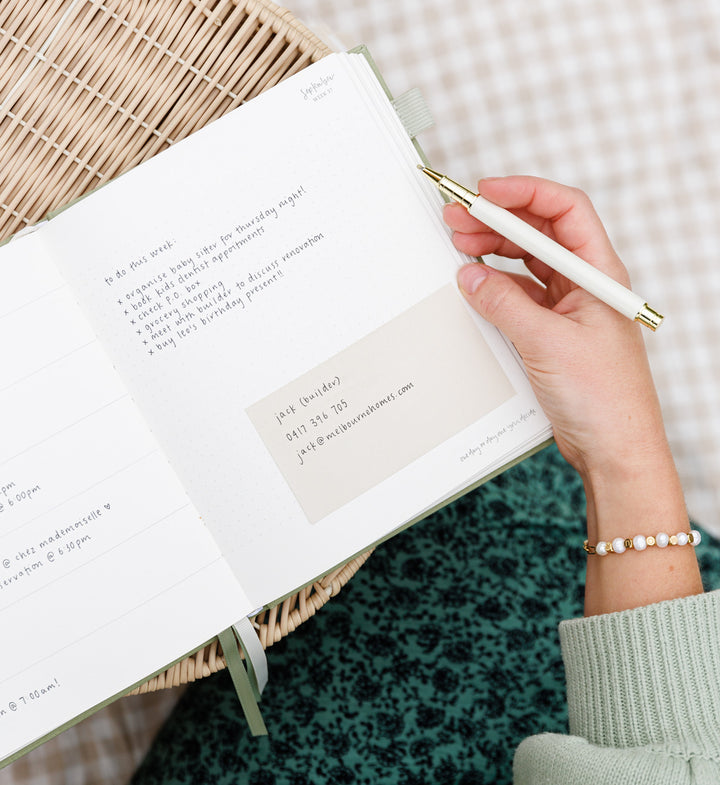 pm
@ 6:00pm
@ chez mademoiselle ♡
servation @ 6:30pm
m @ 7:00am!
september
WEEK 37
to do this week:
x organise baby sitter for thursday night!
x book kids dentist appointments
x check p.o. box
x grocery shopping
x meet with builder to discuss renovation
x buy leo's birthday present!!
jack (builder)
0417 396 705
jack@melbournehomes.com
one day or day one you decide